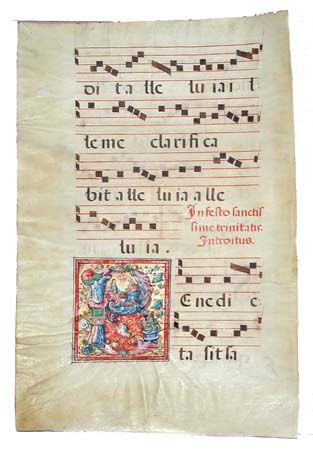 di ta lle lu ia i l
le me clarifica
bit a lle lu ia a lle
lu ia.
In festo sanctis
sime trinitatis.
Introitus.
B Enedi c
ta sit sa